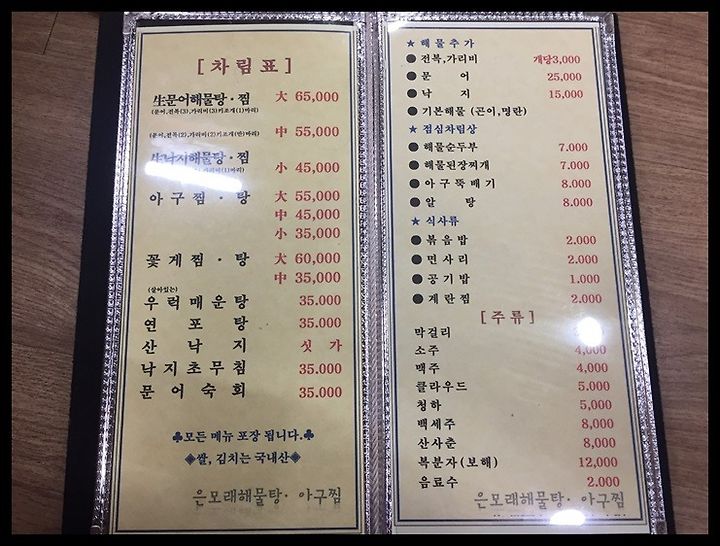 [차림표]
生문어해물탕·찜 大 65,000
(문어,전복(3),가리비(3)키조개(1)마리)
(문어,전복(2),가리비(2)키조개(반)마리) 中 55,000
生낙지해물탕·찜
小 45,000
아구찜·탕 大 55,000
中 45,000
小 35,000
꽃게찜·탕 大 60,000
中 35,000
(살아있는)
우럭매운탕 35.000
연포탕 35.000
산낙지 싯가
낙지초무침 35.000
문어숙회 35.000
♣모든 메뉴 포장 됩니다.♣
◈쌀, 김치는 국내산◈
은모래해물탕· 아구찜
★ 해물추가
● 전복,가리비 개당3,000
● 문어 25,000
● 낙지 15,000
● 기본해물 (곤이,명란)
★ 점심차림상
● 해물순두부 7.000
● 해물된장찌개 7.000
● 아구뚝배기 8.000
● 알탕 8.000
★ 식사류
● 볶음밥 2.000
● 면사리 2.000
● 공기밥 1.000
● 계란찜 2.000
[주류]
막걸리
소주 4,000
맥주 4,000
클라우드 5.000
청하 5,000
백세주 8,000
산사춘 8,000
복분자(보해) 12,000
음료수 2.000
은모래해물탕· 아구찜